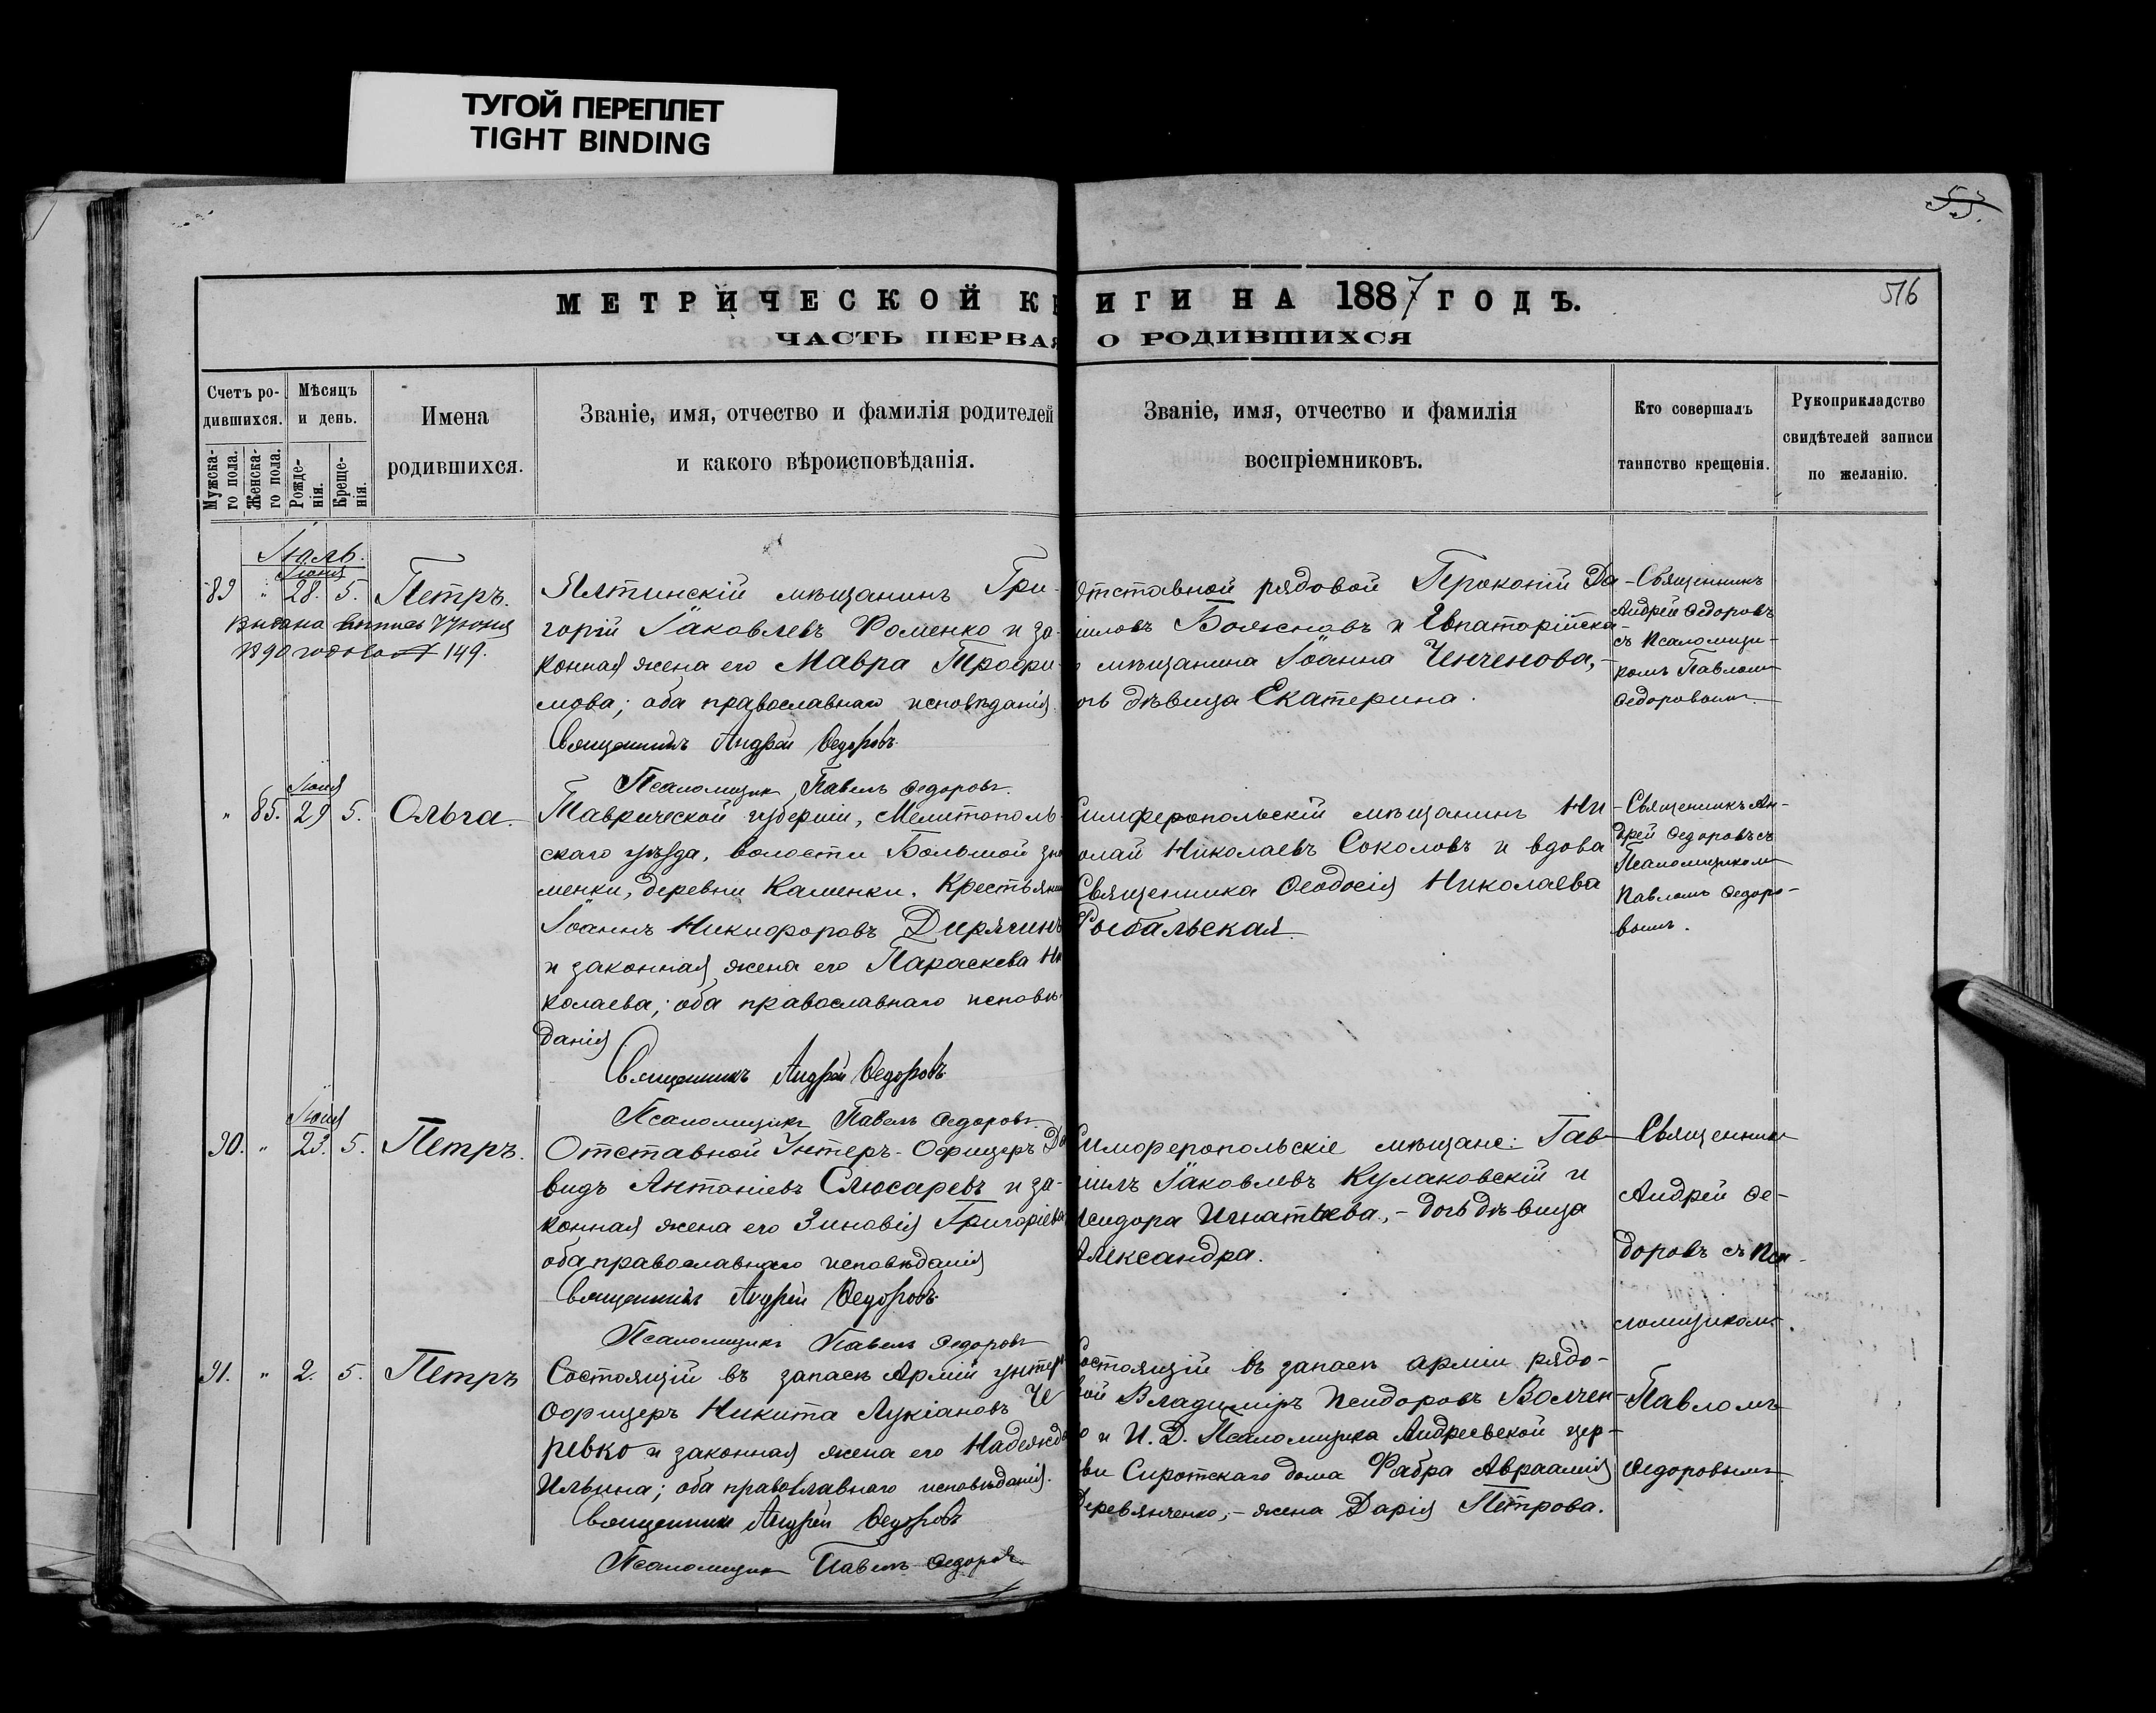 ТУГОЙ ПЕРЕПЛЕТ
TIGHT BINDING
53.
516
МЕТРИЧЕСКОЙ КНИГИ НА 1887 ГОДЪ.
ЧАСТЬ ПЕРВАЯ О РОДИВШИХСЯ
Счетъ ро-
дившихся.
Мужска-
го пола.
Женска-
го пола.
Мѣсяцъ
и день.
Рожде-
нія.
Креще-
нія.
Имена
родившихся.
Званіе, имя, отчество и фамилія родителей
и какого вѣроисповѣданія.
Званіе, имя, отчество и фамилія
воспріемниковъ.
Кто совершалъ
таинство крещенія.
Рукоприкладство
свидѣтелей записи
по желанію.
Іюль.
Іюня
89 " 28. 5. Петръ.
Выдана выпись 7 Іюня
1890 года за № 149.
Ялтинскій мѣщанинъ Гри-
горій Іаковлевъ Роменко и за-
конная жена его Мавра Трофи-
мова; оба православнаго исповѣданія.
Священникъ Андрей Ѳедоровъ.
Псаломщик Павелъ Ѳедоровъ.
Отставной рядовой Прокопій Да-
иловъ Бояновъ и Евпаторійска-
мѣщанина Іоанна Ченченова,-
очь дѣвица Екатерина.
Священникъ
Андрей Ѳедоровъ
съ Псаломщи-
комъ Павломъ
Ѳедоровымъ.
Іюня
" 85. 29 5. Ольга.
Таврической губерніи, Мелитополь-
скаго уѣзда, волости Большой Зна
менки, деревни Каменки. Крестьянин
Іоаннъ Никифоровъ Дирягинъ
и законная жена его Параскева Ни
колаева; оба православнаго исповѣ-
данія
Священникъ Андрей Ѳедоровъ
Псаломщикъ Павелъ Ѳедоровъ.
Симферопольскій мѣщанинъ Ни-
олай Николаевъ Соколовъ и вдова
Священника Ѳеодосія Николаева
Рыбальская.
Священникъ Ан-
дрей Ѳедоровъ съ
Псаломщикомъ
Павломъ Ѳедоро-
вымъ.
Іюня
90. " 23. 5. Петръ.
Отставной Унтеръ-Офицеръ Да
видъ Антоніевъ Слюсаревъ и за-
конная жена его Зиновія Григоріева
оба православнаго исповѣданія
Священникъ Андрей Ѳедоровъ
Псаломщикъ Павелъ Ѳедоровъ
Симферопольскіе мѣщане: Гав-
іилъ Іаковлевъ Кулаковскій и
Исидора Игнатьева,- дочь дѣвица
Александра.
Священникъ
Андрей Ѳе-
доровъ съ Пса-
ломщикомъ.
91. " 2. 5. Петръ
Состоящій въ запасѣ Арміи унтеръ
Офицеръ Никита Лукіановъ Че
ревко и законная жена его Надежда
Ильина; оба православнаго исповѣданія.
Священник Андрей Ѳедоровъ
Псаломщик Павелъ Ѳедоровъ
остоящій въ запасѣ арміи рядо-
вой Владиміръ Исидоровъ Волчен-
о и И. Д. Псаломщика Андреевской цер-
кви Сиротскаго дома Фабра Авраамія
Деревянченко,- жена Дарія Петрова.
Павломъ
Ѳедоровымъ